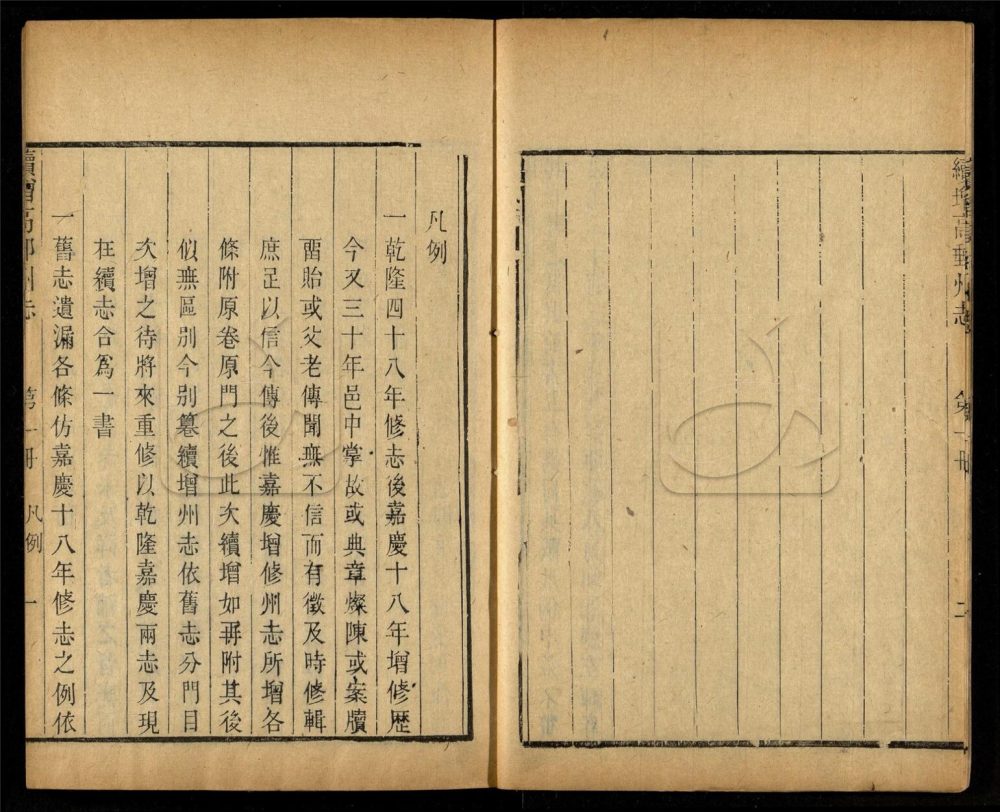 續增高郵州志 第一冊 二
凡例
一乾隆四十八年修志後嘉慶十八年增修歷
今又三十年邑中掌故或典章燦陳或案牘
畱貽或父老傳聞無不信而有徵及時修輯
庶足以信今傳後惟嘉慶增修州志所增各
條附原卷原門之後此次續增如再附其後
似無區別今別纂續增州志依舊志分門目
次增之待將來重修以乾隆嘉慶兩志及現
在續志合爲一書
一舊志遺漏各條仿嘉慶十八年修志之例依
續增高郵州志 第一冊 凡例 一